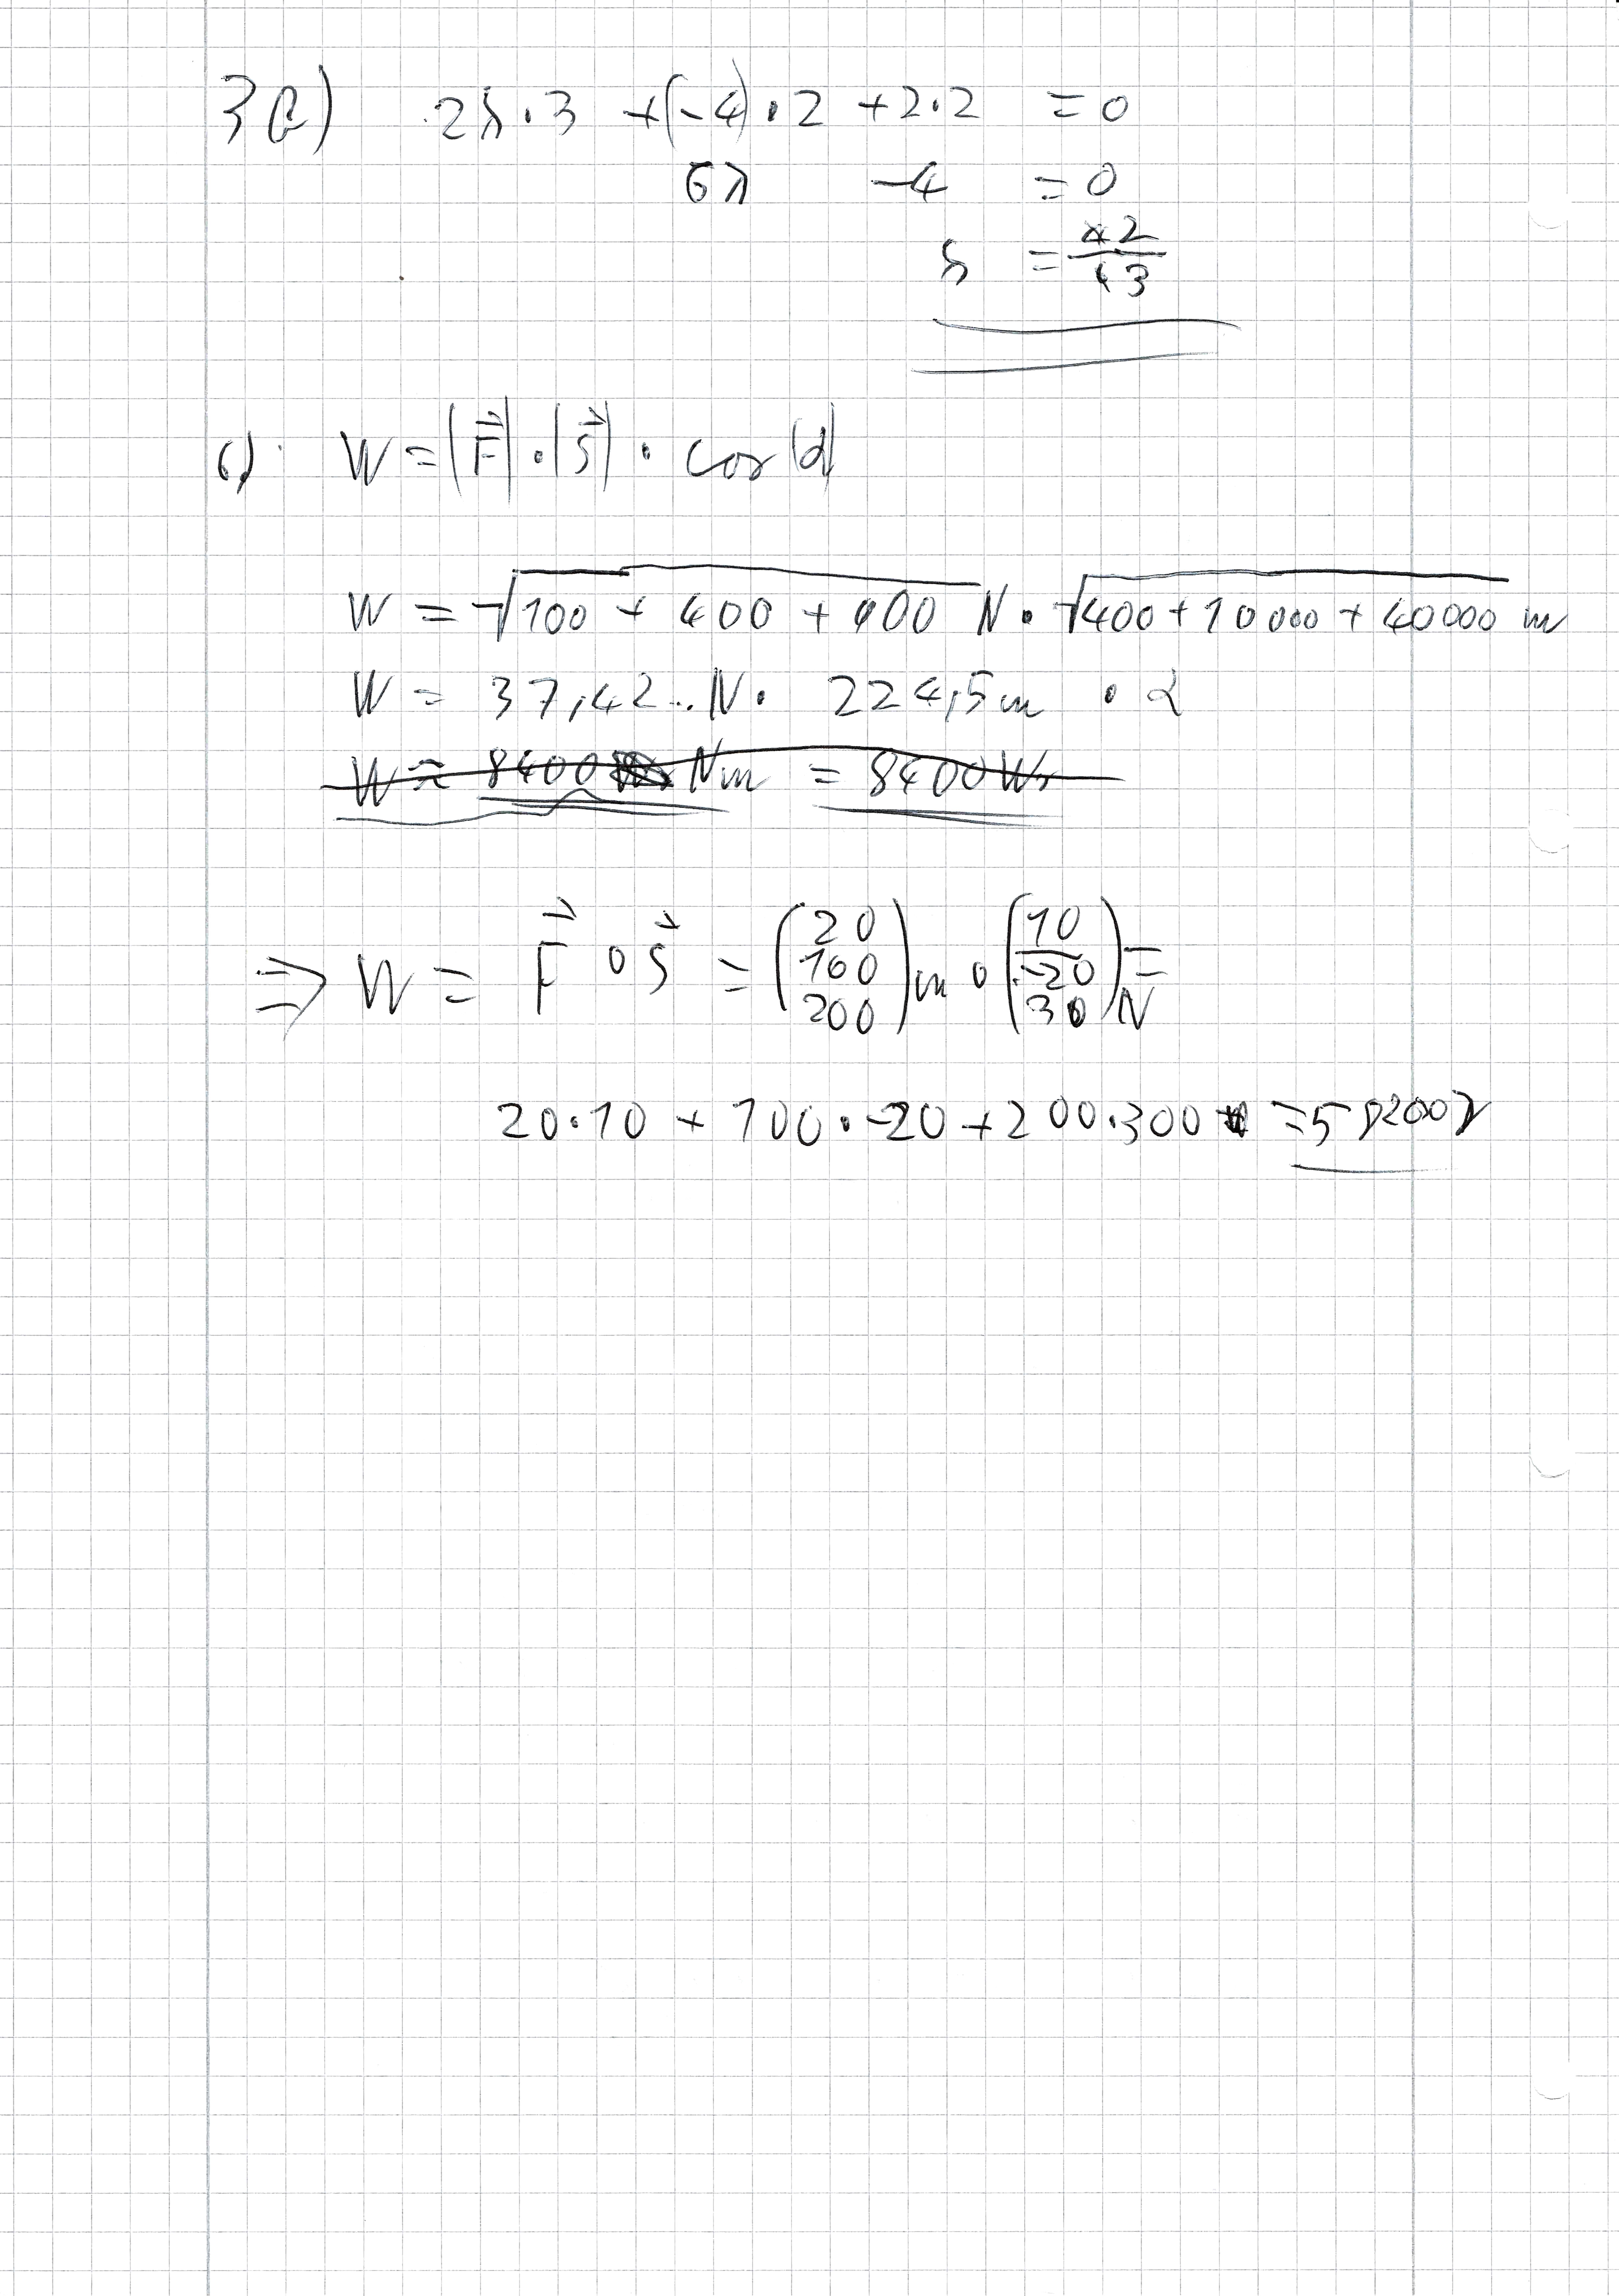 3b) 2λ·3 +(-4)·2 +2·2 = 0
6λ -4 = 0
λ = 2/3
6) W = |F⃗|·|s⃗|· cos(α)
W = √100 + 400 + 900 N · √400 + 10000 + 40000 m
W = 37,42.. N · 224,5m · α
W ≈ 8400 Nm = 8400 Ws
⇒ W = F⃗ ∘ s⃗ = (20 100 200) m ∘ (10 -20 30) N =
20·10 + 100·-20 + 200·300 = 58200J